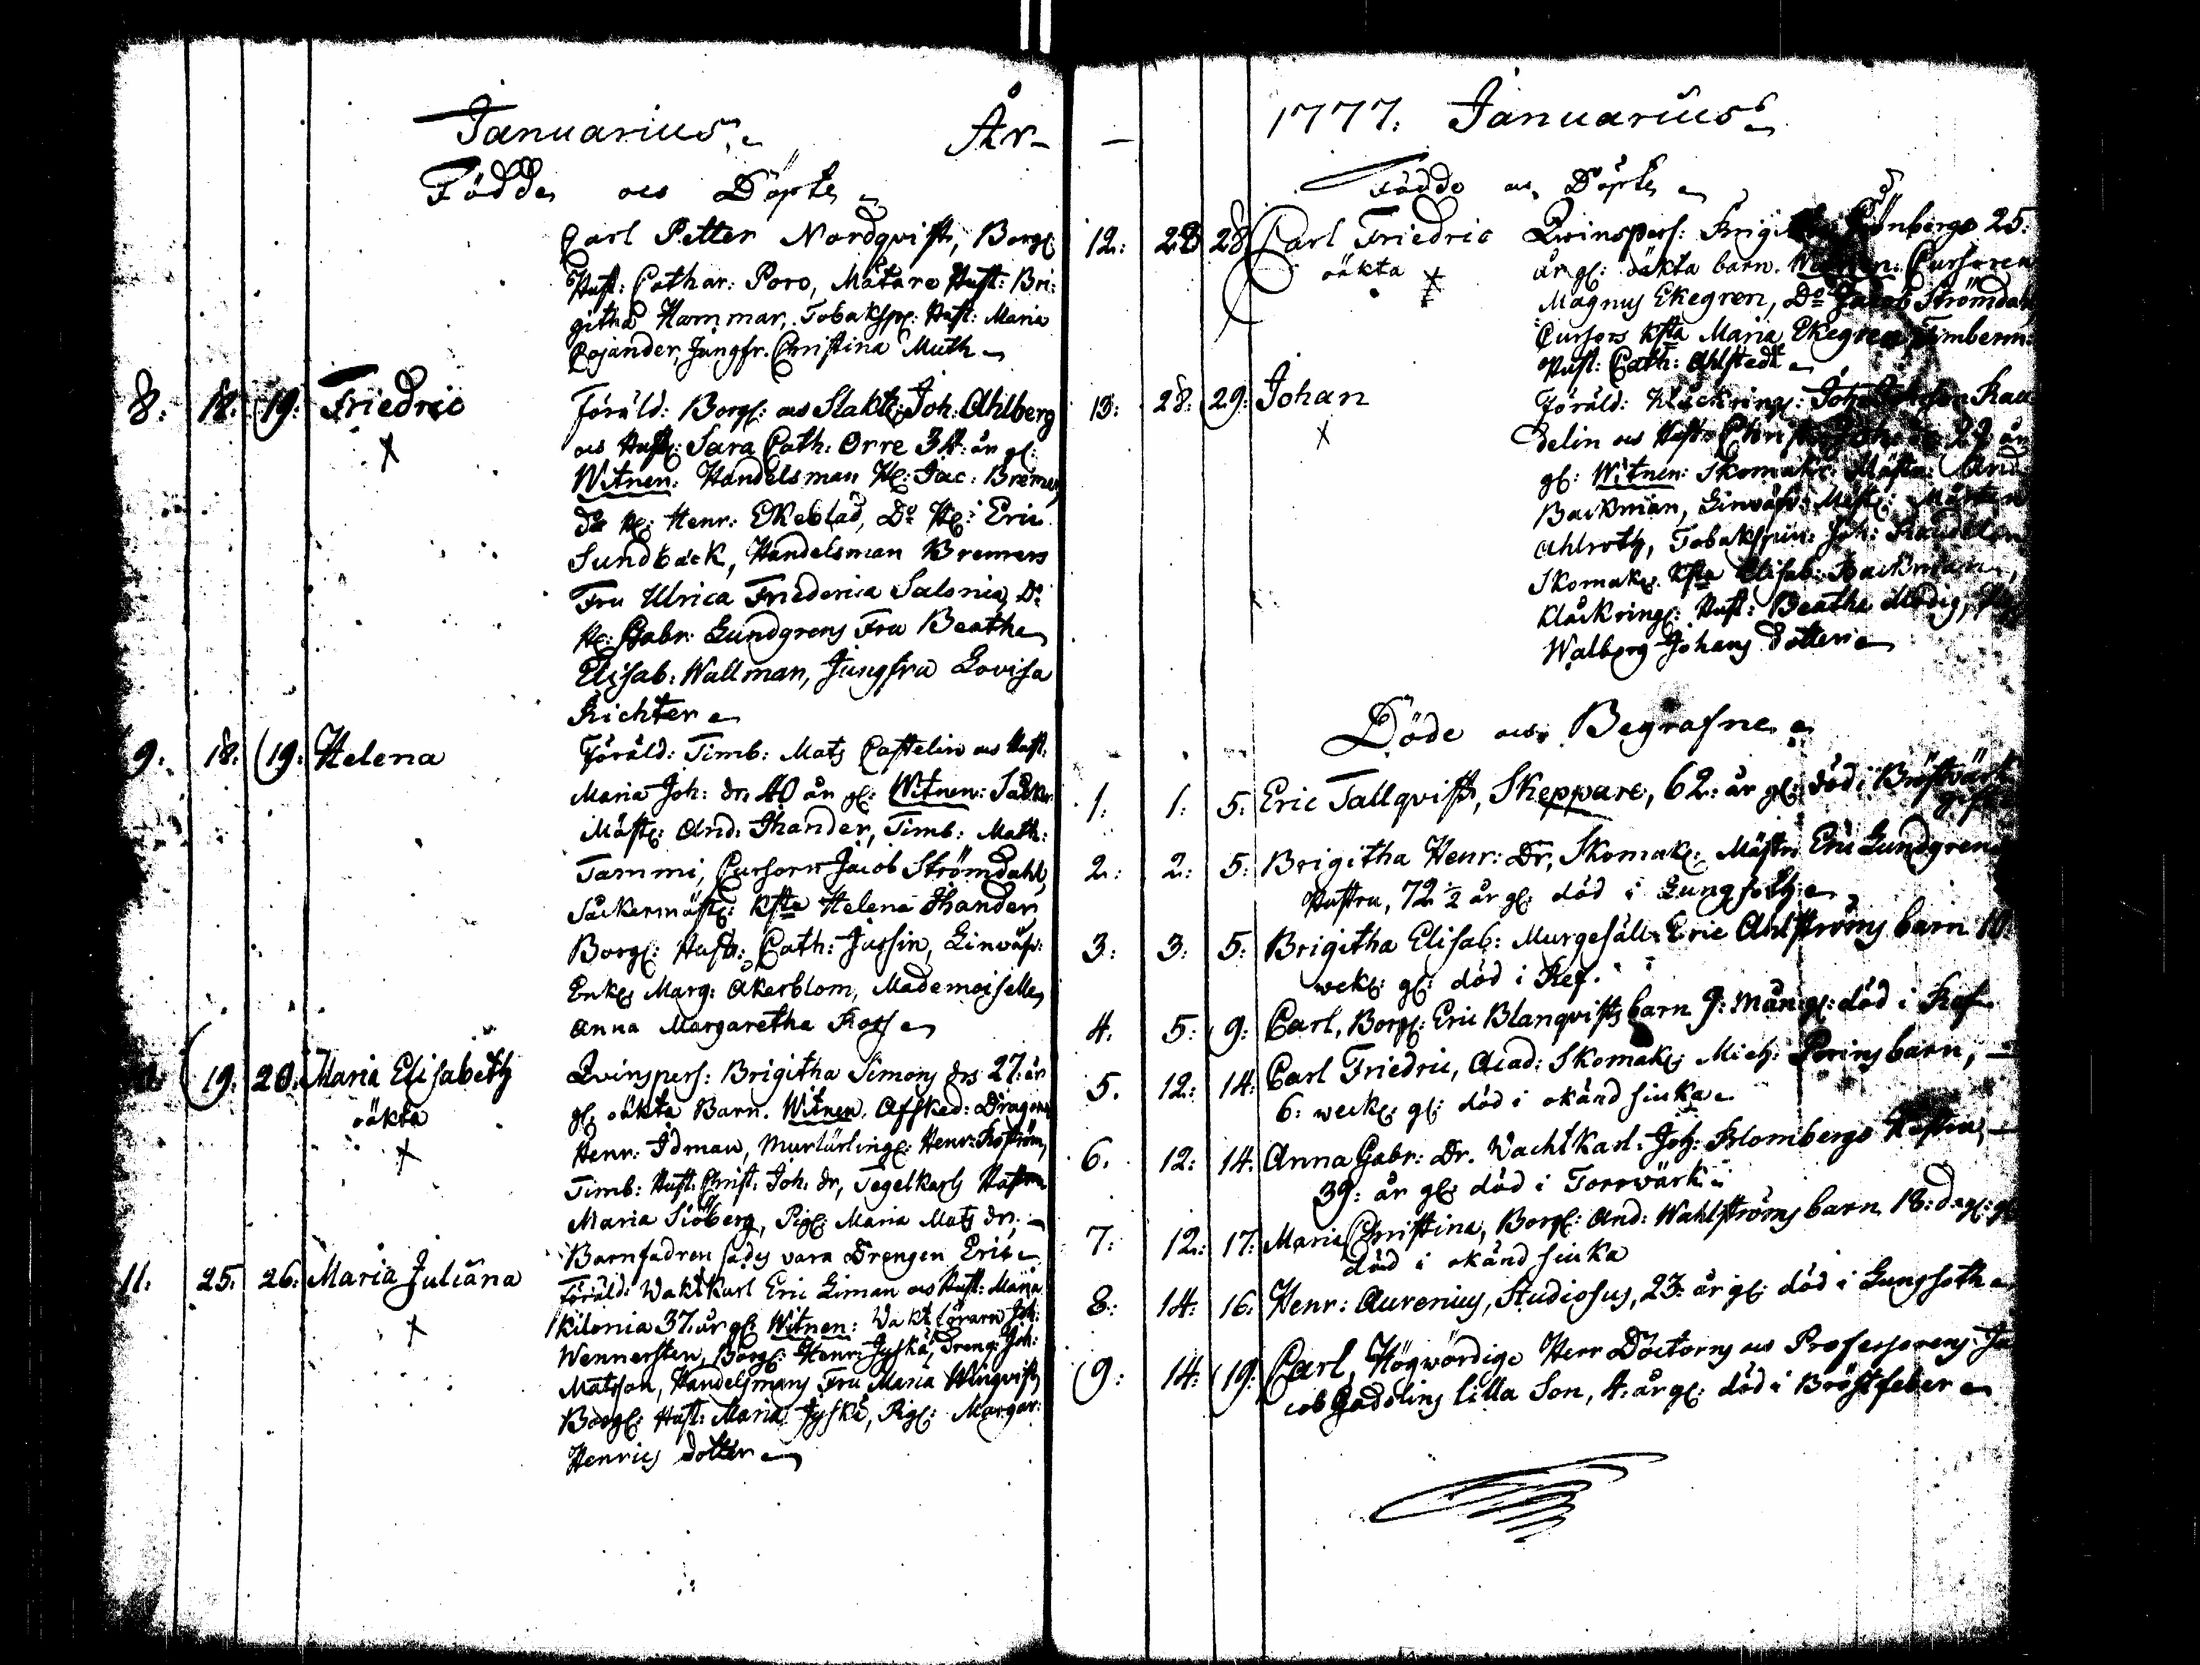 Januarius. År
Födde och Döpte
Carl Petter Nordqvist, Borg:
Hust: Cathar: Poro, Mätare Hust: Bri:
githa Hammar, Tobakspr: Hust: Maria
Cojander, Jungfr. Christina Muth
8: 18: 19: Friedric Föräld: Borg: och Slakt: Joh: Ahlberg
X och Hust: Sara Cath: Orre 34: år gl:
Witnen: Handelsman H: Jac: Bremer
Do H: Henr: Ekeblad, Do H: Eric
Sundbäck, Handelsman Bremers
Fru Ulrica Friederica Salonia, Do
H: Gabr: Lundgrens Fru Beatha
Elisab: Wallman, Jungfru Lovisa
Richter
9: 18: 19: Helena Föräld: Timb: Mats Castelin och Hust:
Maria Joh: dr, 40 år gl: Witnen: Såcker
Mäst: And: Thander, Timb: Math:
Tammi, Cursorn Jacob Strömdahl,
Såckermäst: Ksta Helena Thander
Borg: Hust: Cath: Jussin, Linwäf:
Enk: Marg: Åkerblom, Mademoiselle
Anna Margaretha Ross
19: 20: Maria Elisabeth Qvinspers: Brigitha Simons dr 27: år
oäkta gl: oäkta Barn. Witnen. Afsked: Dragon
X Henr: Idman, Murlärling: Henr:
Timb: Hust: Christ: Joh: dr, Tegelkarls Hustru
Maria Siöberg, Pig: Maria Mats dr,
Barnfadren sades vara Drengen Eric
11: 25: 26: Maria Juliana Föräld: Waktkarl Eric Liman och Hust: Maria
X Kilonia 37. år gl: Witnen: Waktförarn Joh:
Wennersten, Borg: Henr: Jyskä, Dreng: Joh:
Matsson, Handelsmans Fru Maria Winqvist
Borg: Hust: Maria Jyskä, Pig: Margar:
Henrics dotter
1777. Januarius
Födde och Döpte
12: 28 28 Carl Friedric Qvinspers: 25:
oäkta X år gl: oäkta barn. Witnen: Cursoren
Magnus Ekegren, Do Jacob Strömdahl
Cursors Ksta Maria Ekegren Timberm:
Hust: Cath: Ahlstedt
13: 28: 29: Johan Föräld: Klåckring:
X delin och Hust: 29 år
gl: Witnen: Skomak: Mästa: And:
Backman, Linwäf: Mäst: Mårten
Ahlroth, Tobakspin: Joh:
Skomak: Ksta Elisab: Backman,
Klåckring: Hust: Beatha Modig,
Walborg Johans dotter
Döde och Begrafne
1: 1: 5: Eric Tallqvist, Skeppare, 62: år gl: död i Bröstvärk
gift
2: 2: 5: Brigitha Henr: Dr, Skomak: Mästr: Eric Lundgrens
Hustru, 72 1/2 år gl: död i Lungsoth
3: 3: 5: Brigitha Elisab: Murgesäll: Eric Ahlströms barn 10
wek: gl: död i Ref.
4. 5: 9: Carl, Borg: Eric Blanqvists barn 9: mån: gl: död i Ref
5. 12: 14: Carl Friedric, Acad: Skomak: Mich: barn,
6: weck: gl: död i okänd siuka
6. 12: 14: Anna Gabr: Dr. Wachtkarl: Joh: Blombergs Hustru,
39: år gl: död i Torrwärk
7: 12: 17: Maria Christina, Borg: And: Wahlströms barn 18: dag: gl
död i okänd siuka
8: 14: 16: Henr: Aurenius, Studiosus, 23: år gl: död i Lungsoth
9: 14: 19: Carl, Högwördige Herr Doctorns och Professorens Ja
cob Gadolins lilla Son, 4: år gl: död i Bröstfeber